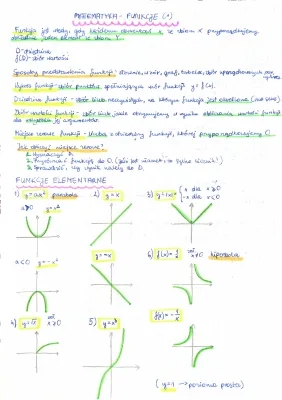 MATEMATYKA - FUNKCJE (1)
Funkcja jest wtedy, gdy każdemu elementowi x ze zbioru X przyporządkujemy
dokładnie jeden element ze zbioru Y.
D - dziedzina
f(D) - zbiór wartości
Sposoby przedstawiania funkcji: słownie, wzór, graf, tabelka, zbiór uporządkowanych par, wykres
Wykres funkcji - zbiór punktów, spełniających wzór funkcji y = f(x).
Dziedzina funkcji - zbiór liczb rzeczywistych, na którym funkcja jest określona
Zbiór wartości funkcji - zbiór liczb, jakie otrzymujemy w wyniku obliczenia wartości funkcji
do wszystkich jej argumentów.
Miejsce zerowe funkcji - liczba z dziedziny funkcji, której przyporządkujemy 0.
Jak obliczyć miejsce zerowe?
1. Wyznaczyć D.
2. Przyrównać funkcję do 0.
3. Sprawdzić, czy wynik należy do D.
FUNKCJE ELEMENTARNE
1) y = ax² parabola
2) y = x
3) y = |x| = { x dla x ≥ 0
-x dla x < 0
a > 0 y = x²
a < 0 y = -x²
y = -x
6) f(x) = 1/x x ≠ 0 hiperbola
f(x) = -1/x
4) y = √x x ≥ 0
5) y = x³
(y = 1 → pozioma prosta)